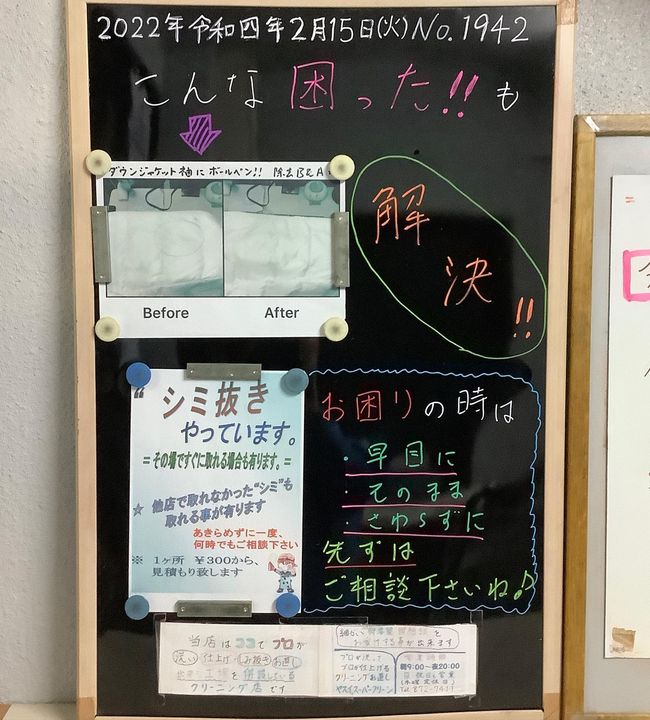 2022年令和四年2月15日(火)No.1942
こんな困った!!も
ダウンジャケット袖にボールペン!! 除去B&A
Before After
解決!!
“シミ抜き
やっています。
=その場ですぐに取れる場合も有ります。=
☆ 他店で取れなかった“シミ”も
取れる事が有ります
あきらめずに一度、
何時でもご相談下さい
※ 1ヶ所 ¥300から、
見積もり致します
お困りの時は
・早目に
・そのまま
・さわらずに
先ずは
ご相談下さいね♪
当店はココでプロが
洗い 仕上げ しみ抜き お直し
クリーニング店です
お受けする事が出来ます
プロが洗って
プロが仕上げる
クリーニングお直し
ヤスイスーパークリーン
営業時間
朝9:00〜夜20:00
日祝日も営業
(木曜定休日)